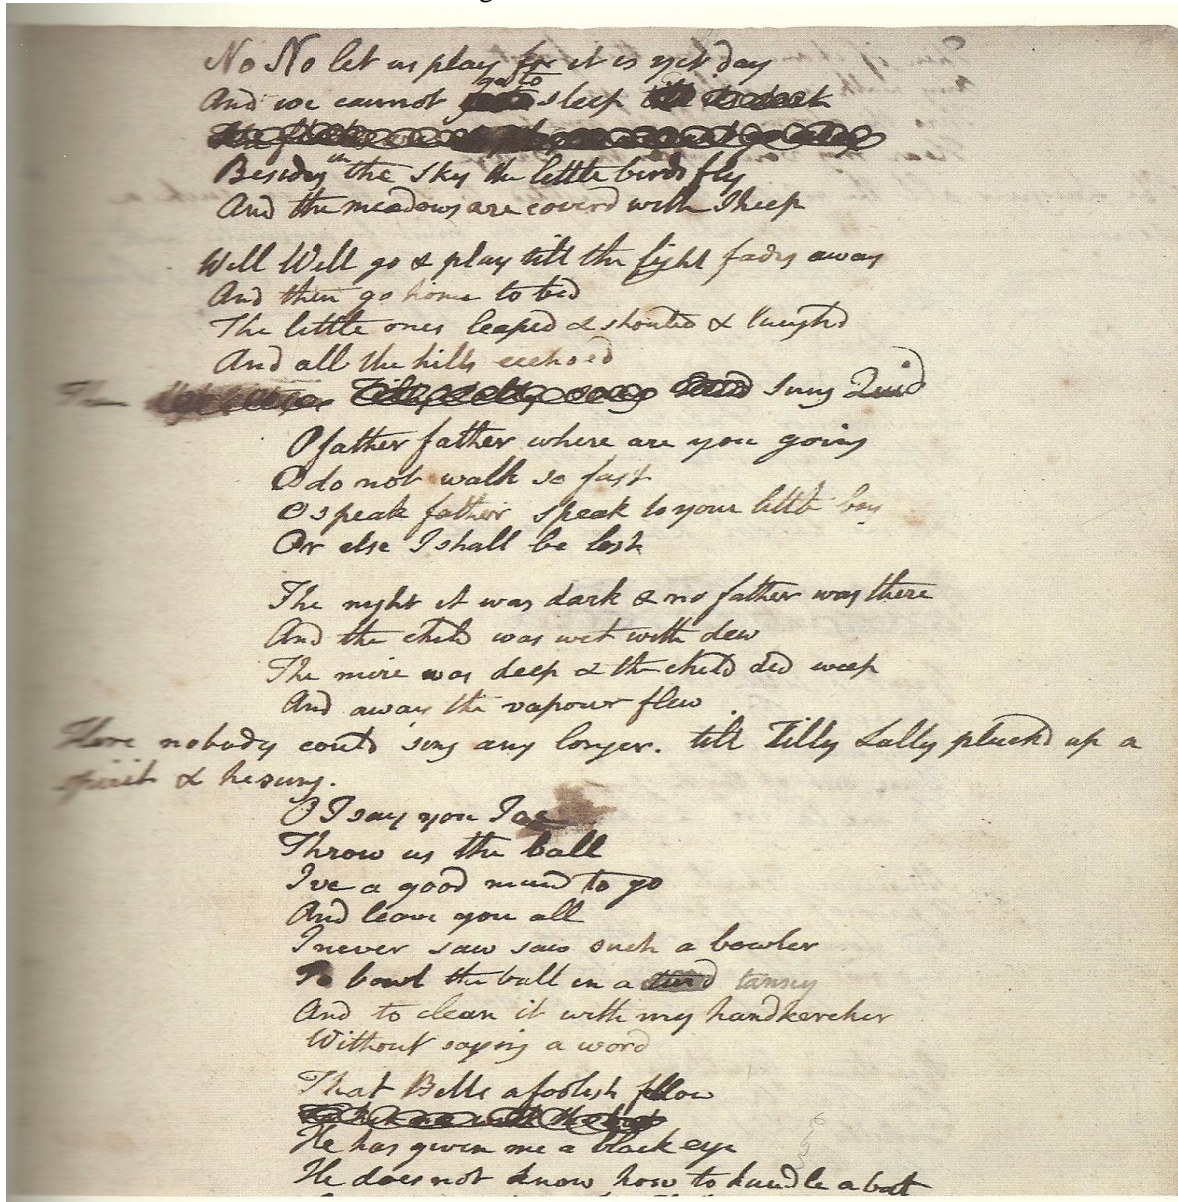 No No let us play for it is yet day
go to
And we cannot sleep till its dark
Besides in the sky the little birds fly
And the meadows are coverd with Sheep
Well Well go & play till the light fades away
And then go home to bed
The little ones leaped & shouted & laughd
And all the hills ecchoed
Then sung Quid
O father father where are you going
O do not walk so fast
O speak father speak to your little boy
Or else I shall be lost
The night it was dark & no father was there
And the child was wet with dew
The mire was deep & the child did weep
And away the vapour flew
Here nobody could sing any longer. till Tilly Lally pluckd up a
spirit & he sung.
O I say you Joe
Throw us the ball
Ive a good mind to go
And leave you all
I never saw saw such a bowler
To bowl the ball in a turd tansey
And to clean it with my handkercher
Without saying a word
That Bills a foolish fellow
He has given me a black eye
He does not know how to handle a bat